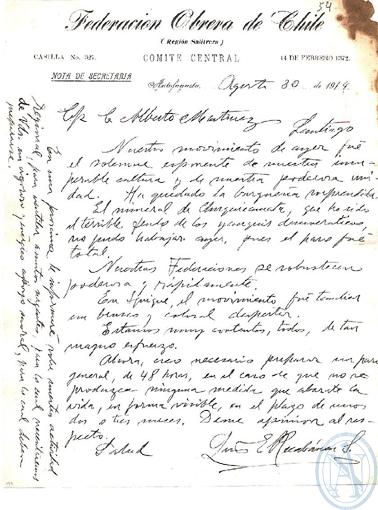 54
Federación Obrera de Chile
(Región Salitrera)
COMITE CENTRAL
CASILLA No. 325.
14 DE FEBRERO 1372.
NOTA DE SECRETARIA
Antofagasta, Agosto 30 de 1919
C/p. C Alberto Martinez
Santiago
Nuestro movimiento de ayer fué
el solemne esponente de nuestra
cultura y de nuestra poderosa uni-
dad. Ha quedado la burguesía sorprendida.
El mineral de Chuquicamata, que ha sido
el terrible feudo de los yanquis
no pudo trabajar ayer, pues el paro fué
total.
Nuestras Federaciones se robustecen
poderosa y rápidamente.
En Iquique, el movimiento fué tambien
inmenso y colosal despertar.
Estamos muy contentos, todos, de tan
magno esfuerzo.
Ahora, creo necesario preparar un paro
general, de 48 horas, en el caso de que no se
produzca ninguna medida que abarate la
vida, en forma visible, en el plazo de unos
dos o tres meses. Deme opinion al res-
pecto.
Salud
Luis E Recabarren S.
En una proxima le informaré sobre nuestra actividad
regional, para
de Uds. un apoyo moral, para lo cual deben
prepararse.